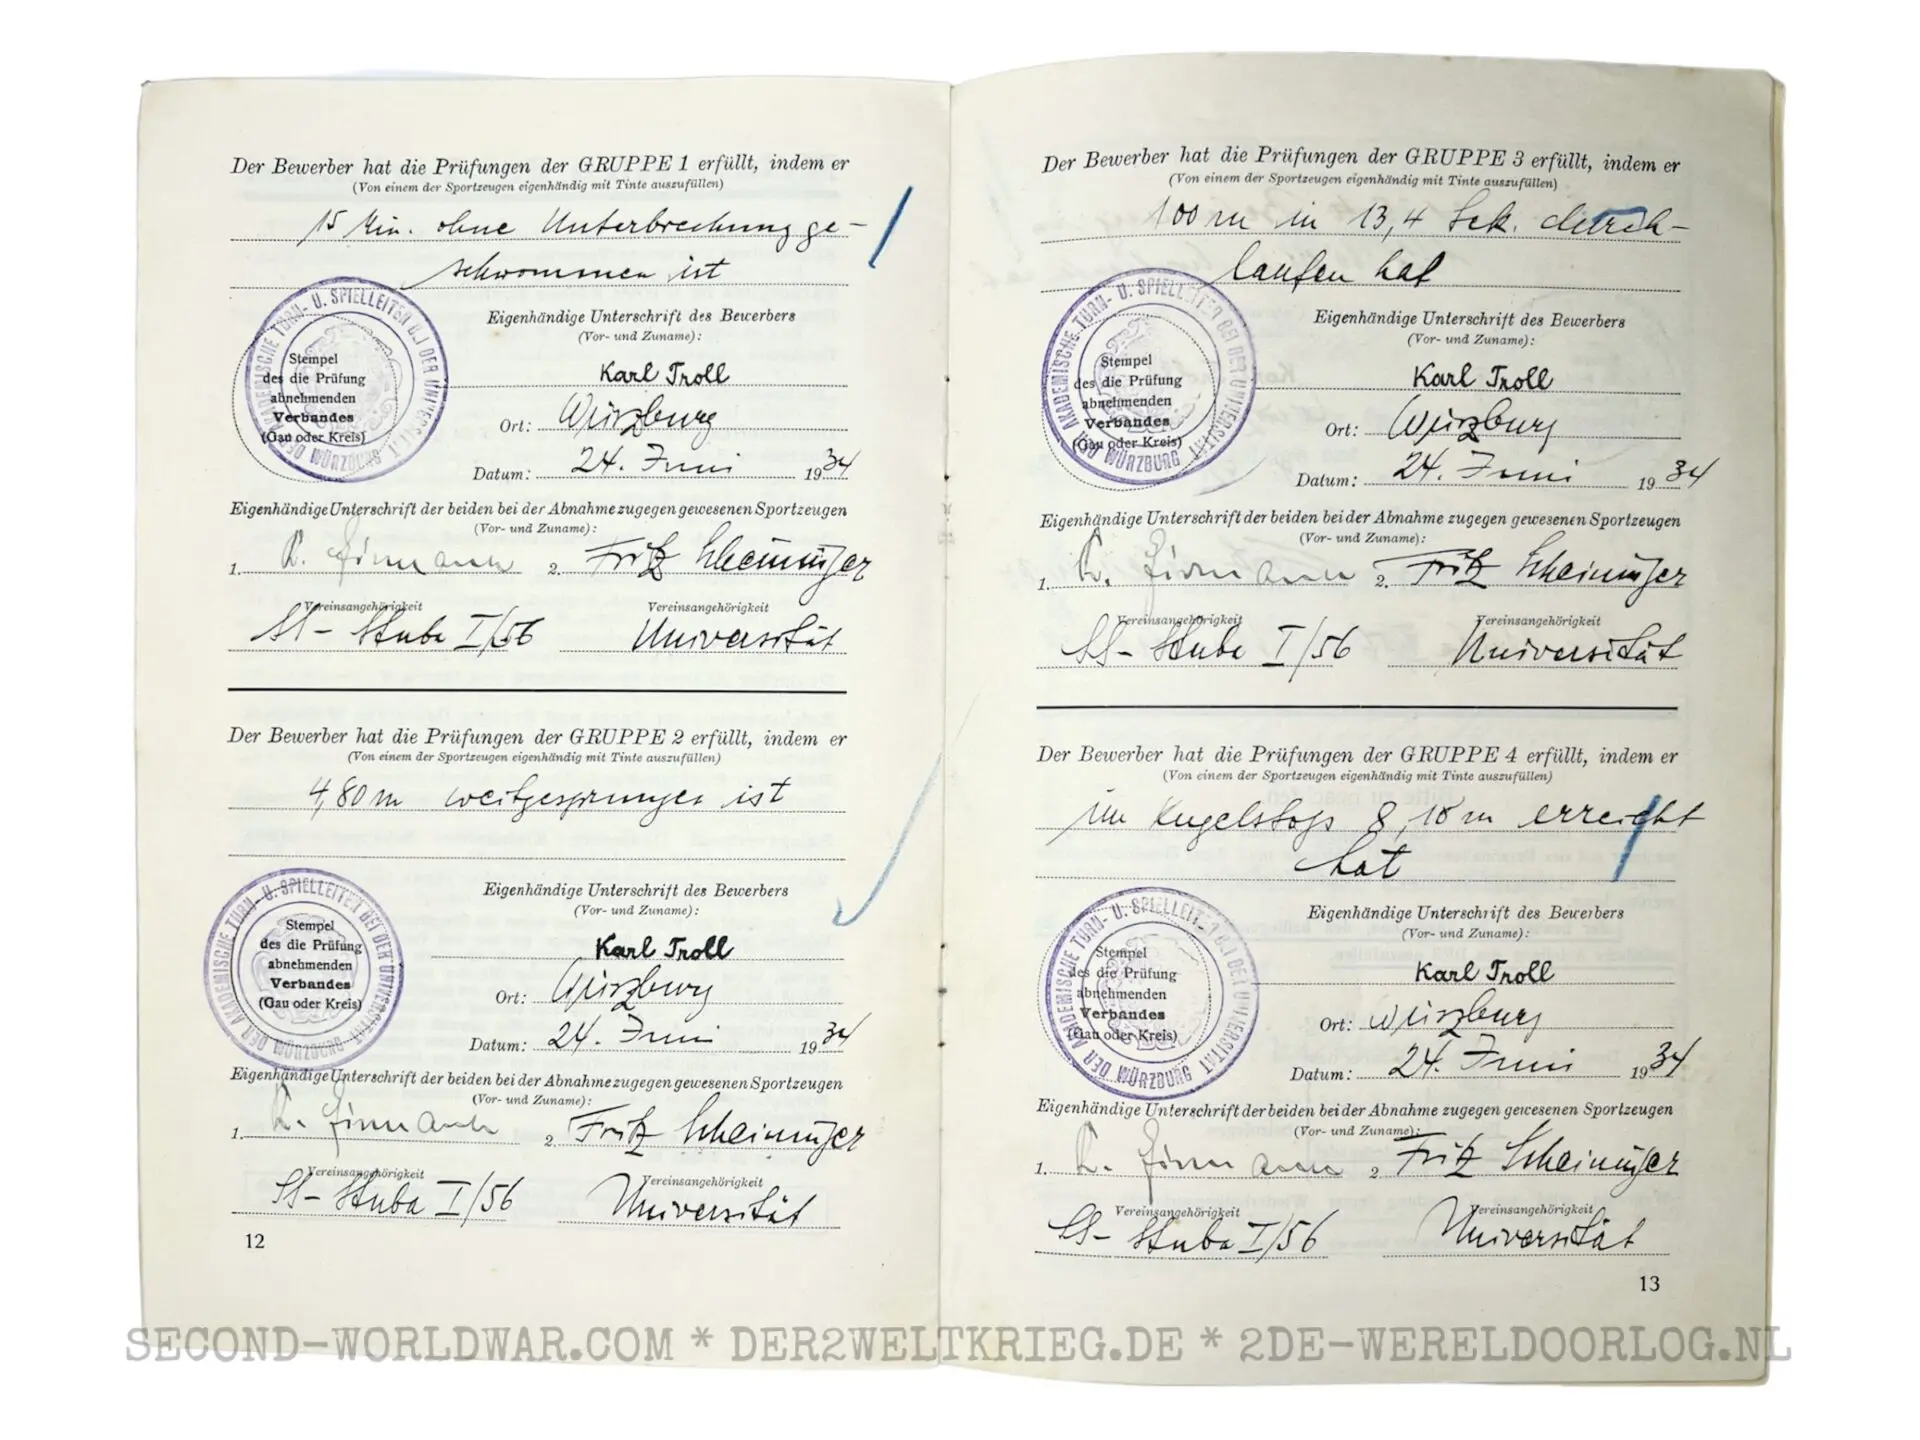 Der Bewerber hat die Prüfungen der GRUPPE 1 erfüllt, indem er
(Von einem der Sportzeugen eigenhändig mit Tinte auszufüllen)
15 Min. ohne Unterbrechung ge-
schwommen ist
DER AKADEMISCHE TURN- U. SPIELLEITER BEI DER UNIVERSITÄT WÜRZBURG
Stempel
des die Prüfung
abnehmenden
Verbandes
(Gau oder Kreis)
Eigenhändige Unterschrift des Bewerbers
(Vor- und Zuname):
Karl Troll
Ort: Würzburg
Datum: 24. Juni 1934
Eigenhändige Unterschrift der beiden bei der Abnahme zugegen gewesenen Sportzeugen
(Vor- und Zuname):
1. 2. Fritz Scheininger
Vereinsangehörigkeit Vereinsangehörigkeit
SS- Stuba I/56 Universität
Der Bewerber hat die Prüfungen der GRUPPE 2 erfüllt, indem er
(Von einem der Sportzeugen eigenhändig mit Tinte auszufüllen)
4,80 m weitgesprungen ist
DER AKADEMISCHE TURN- U. SPIELLEITER BEI DER UNIVERSITÄT WÜRZBURG
Stempel
des die Prüfung
abnehmenden
Verbandes
(Gau oder Kreis)
Eigenhändige Unterschrift des Bewerbers
(Vor- und Zuname):
Karl Troll
Ort: Würzburg
Datum: 24. Juni 1934
Eigenhändige Unterschrift der beiden bei der Abnahme zugegen gewesenen Sportzeugen
(Vor- und Zuname):
1. 2. Fritz Scheininger
Vereinsangehörigkeit Vereinsangehörigkeit
SS- Stuba I/56 Universität
12
Der Bewerber hat die Prüfungen der GRUPPE 3 erfüllt, indem er
(Von einem der Sportzeugen eigenhändig mit Tinte auszufüllen)
100 m in 13,4 Sek. durch-
laufen hat
DER AKADEMISCHE TURN- U. SPIELLEITER BEI DER UNIVERSITÄT WÜRZBURG
Stempel
des die Prüfung
abnehmenden
Verbandes
(Gau oder Kreis)
Eigenhändige Unterschrift des Bewerbers
(Vor- und Zuname):
Karl Troll
Ort: Würzburg
Datum: 24. Juni 1934
Eigenhändige Unterschrift der beiden bei der Abnahme zugegen gewesenen Sportzeugen
(Vor- und Zuname):
1. 2. Fritz Scheininger
Vereinsangehörigkeit Vereinsangehörigkeit
SS- Stuba I/56 Universität
Der Bewerber hat die Prüfungen der GRUPPE 4 erfüllt, indem er
(Von einem der Sportzeugen eigenhändig mit Tinte auszufüllen)
im Kugelstoß 8,18 m erreicht
hat
DER AKADEMISCHE TURN- U. SPIELLEITER BEI DER UNIVERSITÄT WÜRZBURG
Stempel
des die Prüfung
abnehmenden
Verbandes
(Gau oder Kreis)
Eigenhändige Unterschrift des Bewerbers
(Vor- und Zuname):
Karl Troll
Ort: Würzburg
Datum: 24. Juni 1934
Eigenhändige Unterschrift der beiden bei der Abnahme zugegen gewesenen Sportzeugen
(Vor- und Zuname):
1. 2. Fritz Scheininger
Vereinsangehörigkeit Vereinsangehörigkeit
SS- Stuba I/56 Universität
13
SECOND-WORLDWAR.COM * DER2WELTKRIEG.DE * 2DE-WERELDOORLOG.NL